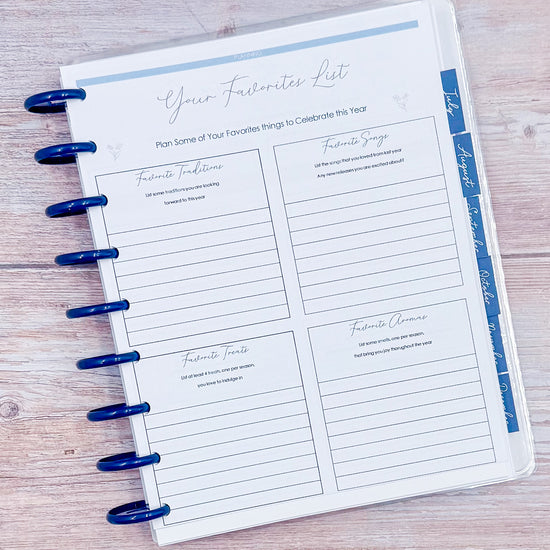 PLANNING
Your Favorites List
Plan Some of Your Favorites things to Celebrate this Year
Favorite Traditions
List some traditions you are looking
forward to this year
Favorite Songs
List the songs that you loved from last year
Any new releases you are excited about?
Favorite Treats
List at least 4 treats, one per season,
you love to indulge in
Favorite Aromas
List some smells, one per season,
that bring you joy throughout the year
July
August
September
October
November
December